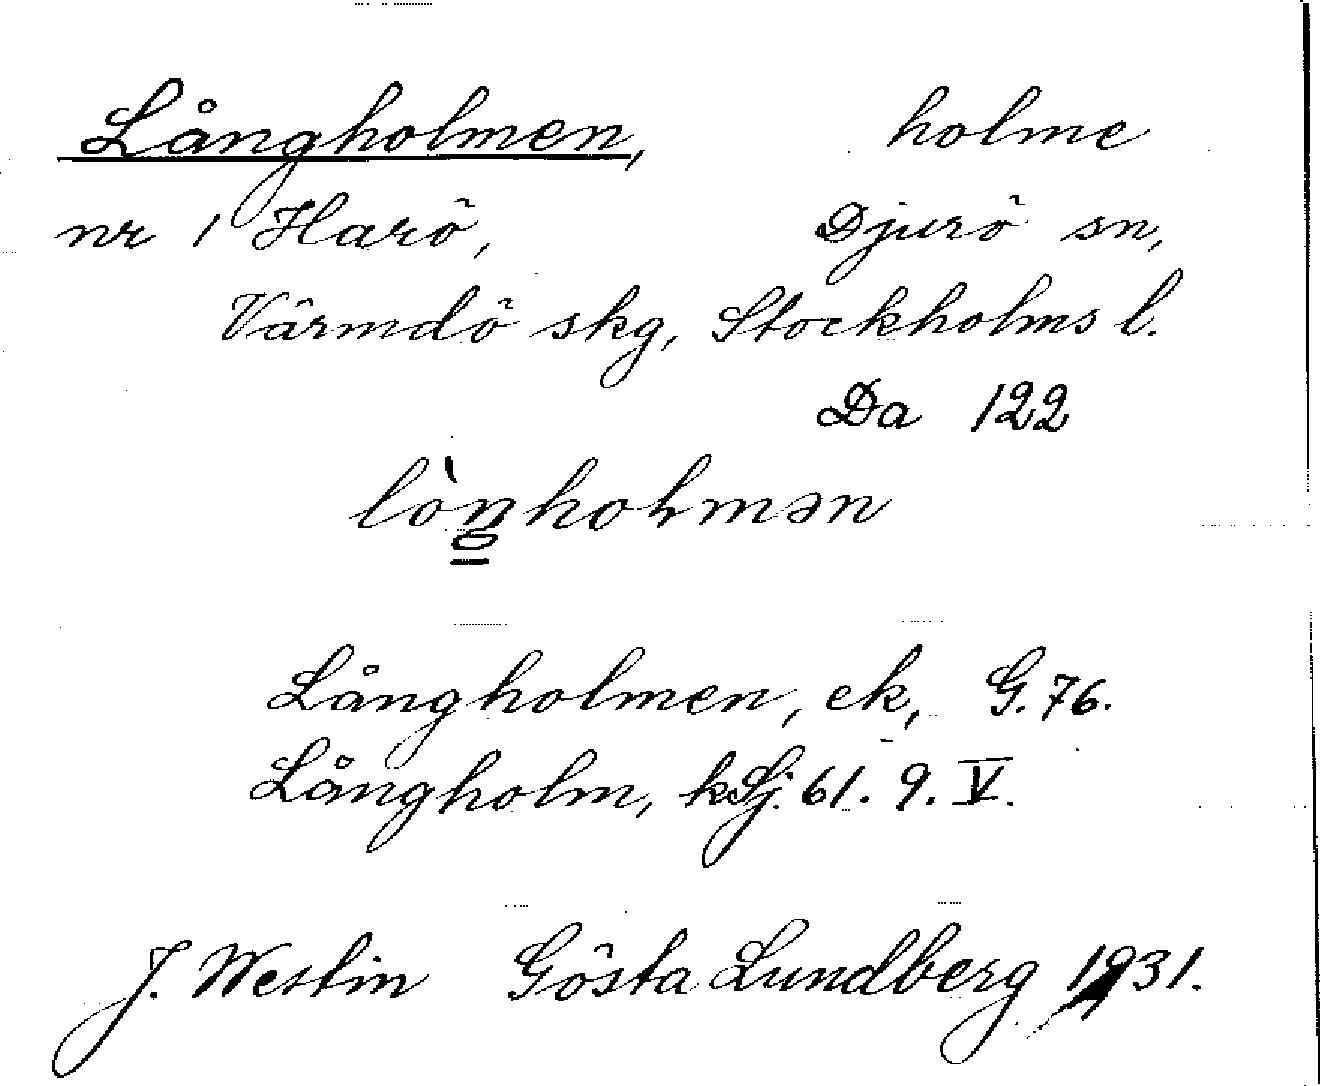 Långholmen, holme
nr 1 Harö, Djurö sn,
Värmdö skg, Stockholms l.
Da 122
Långholmen, ek, G. 76.
Långholm, kSj. 61. 9. V.
J. Westin Gösta Lundberg 1931.